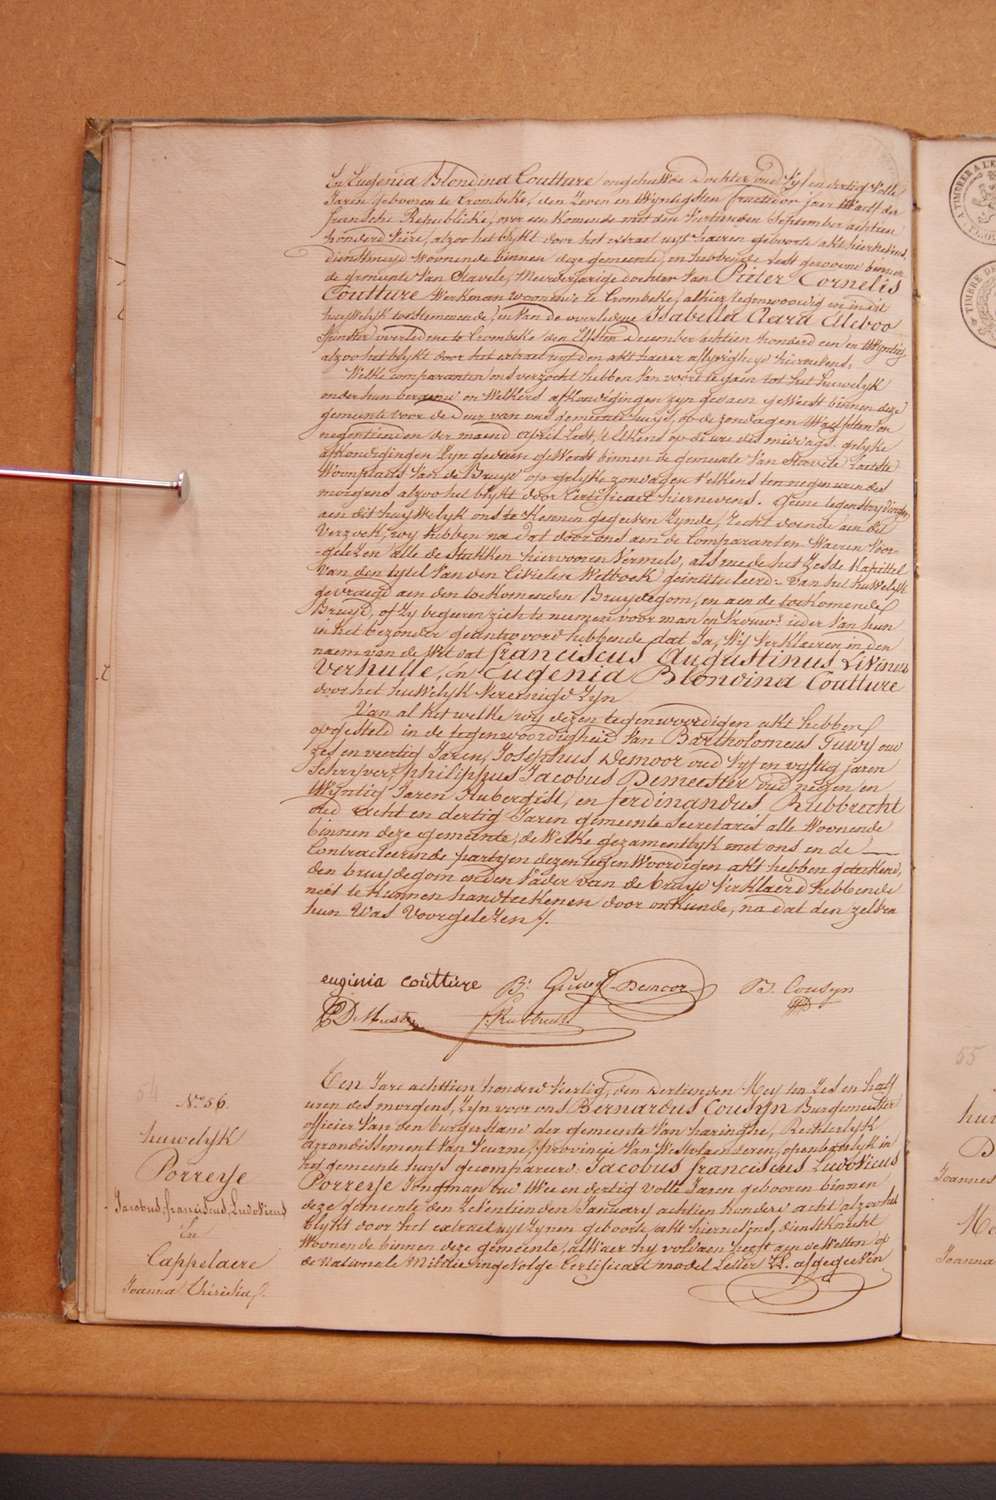 En Eugenia Blondina Coutture ongehuwde dochter oud vyf en dertig volle
Jaren geboren te Crombeke, den zeven en twyntigsten fructidor jaer twaelf der
fransche Republieke, over een komende met den veertienden September achtien
honderd viere, alzoo het blykt door het extract uyt haeren geboorte akt hiernevens,
dienstmeyd woonende binnen deze gemeente, en hebbende lest gewoond binnen
de gemeente van Stavele, meerderjarige dochter van Pieter Cornelis
Coutture werkman woonende te Crombeke, alhier tegenwoordig en in dit
huwelyk toestemmende, en van de overledene Isabella Clara
spinster overleden te Crombeke den elfsten december achtien honderd een en twyntig
alzoo het blykt door het extract uyt den akt haerer aflyvigheyd hiernevens.
Welke comparanten ons verzocht hebben van voort te gaen tot het huwelyk
onder hun begeerd en welkers afkondigingen zyn gedaen geweest binnen deze
gemeente voor de deur van ons gemeente huys, op de zondagen twaelfsten en
negentienden der maend april lest, t'elkens op de ure des middags. gelyke
afkondigingen zyn gedaen geweest binnen de gemeente van Stavele laetste
woonplaets van de Bruyd op gelyke zondagen telkens ten negen uren des
morgens alzoo het blykt door Certificaet hiernevens. Geene tegenstrydigheden
aen dit huywelyk ons te kennen gegeeven zynde, recht doende aen dit
verzoek, wy hebben na dat door ons aen de Comparanten waeren voor-
-gelezen alle de stukken hiervooren vermeld, als mede het zesde Kapittel
van den tytel van den Civielen Wetboek geintituleerd - van het huwelyk
gevraegd aen den toekomenden Bruydegom, en aen de toekomende
Bruyd, of zy begeeren zich te nemen voor man en vrouw, ieder van hun
in het bezonder geantwoord hebbende dat Ja, wy verklaeren in den
naem van de wet dat franciscus Augustinus Livinus
Verhulle, en Eugenia Blondina Coutture
door het huwelyk vereenigd zyn
Van al het welke wy dezen tegenwoordigen akt hebben
opgesteld in de tegenwoordigheid van Bartholomeus Guwy oud
zes en veertig Jaren, Josephus Demoor oud vyf en vyftig jaren
schryvers, philippus Jacobus Demeester oud negen en
twyntig Jaren Herbergist, en ferdinandus Rubbrecht
oud acht en dertig Jaren gemeente secretaris alle woonende
binnen deze gemeente, de welke gezamentlyk met ons en de
Contracteerende partyen dezen tegenwoordigen akt hebben geteekend,
den bruydegom en den vader van de bruyd verklaerd hebbende
niet te kunnen handteekenen door onkunde, na dat den zelven
hun was voorgelezen.
euginia coutture B. Guwy Demoor B. Cousyn
DeMeester f. Rubbrecht
54
N.ro 56.
huwelyk
Porreye
Jacobus, franciscus, Ludovicus
En
Cappelaere
Joanna Theresia
Ten Jare achtien honderd veertig, den dertienden Mey ten zes en half
uren des morgens, zyn voor ons Bernardus Cousyn Burgemeester
officier van den burgerstand der gemeente van haringhe, Rechterlyk
Arrondissement van Veurne, provincie van Westvlaenderen, openbaerlyk in
het gemeente huys gecompareerd: Jacobus franciscus Ludovicus
Porreye Jongman oud twee en dertig volle Jaren gebooren binnen
deze gemeente den zeventienden January achtien honderd acht alzoo het
blykt door het extract uyt zynen geboorte akt hiernevens, dienstknecht
woonende binnen deze gemeente, alwaer hy voldaen heeft aen de wetten op
de nationale Militie ingevolge Certificaet model Letter LL. afgegeeven
55
Joannes
Joanna